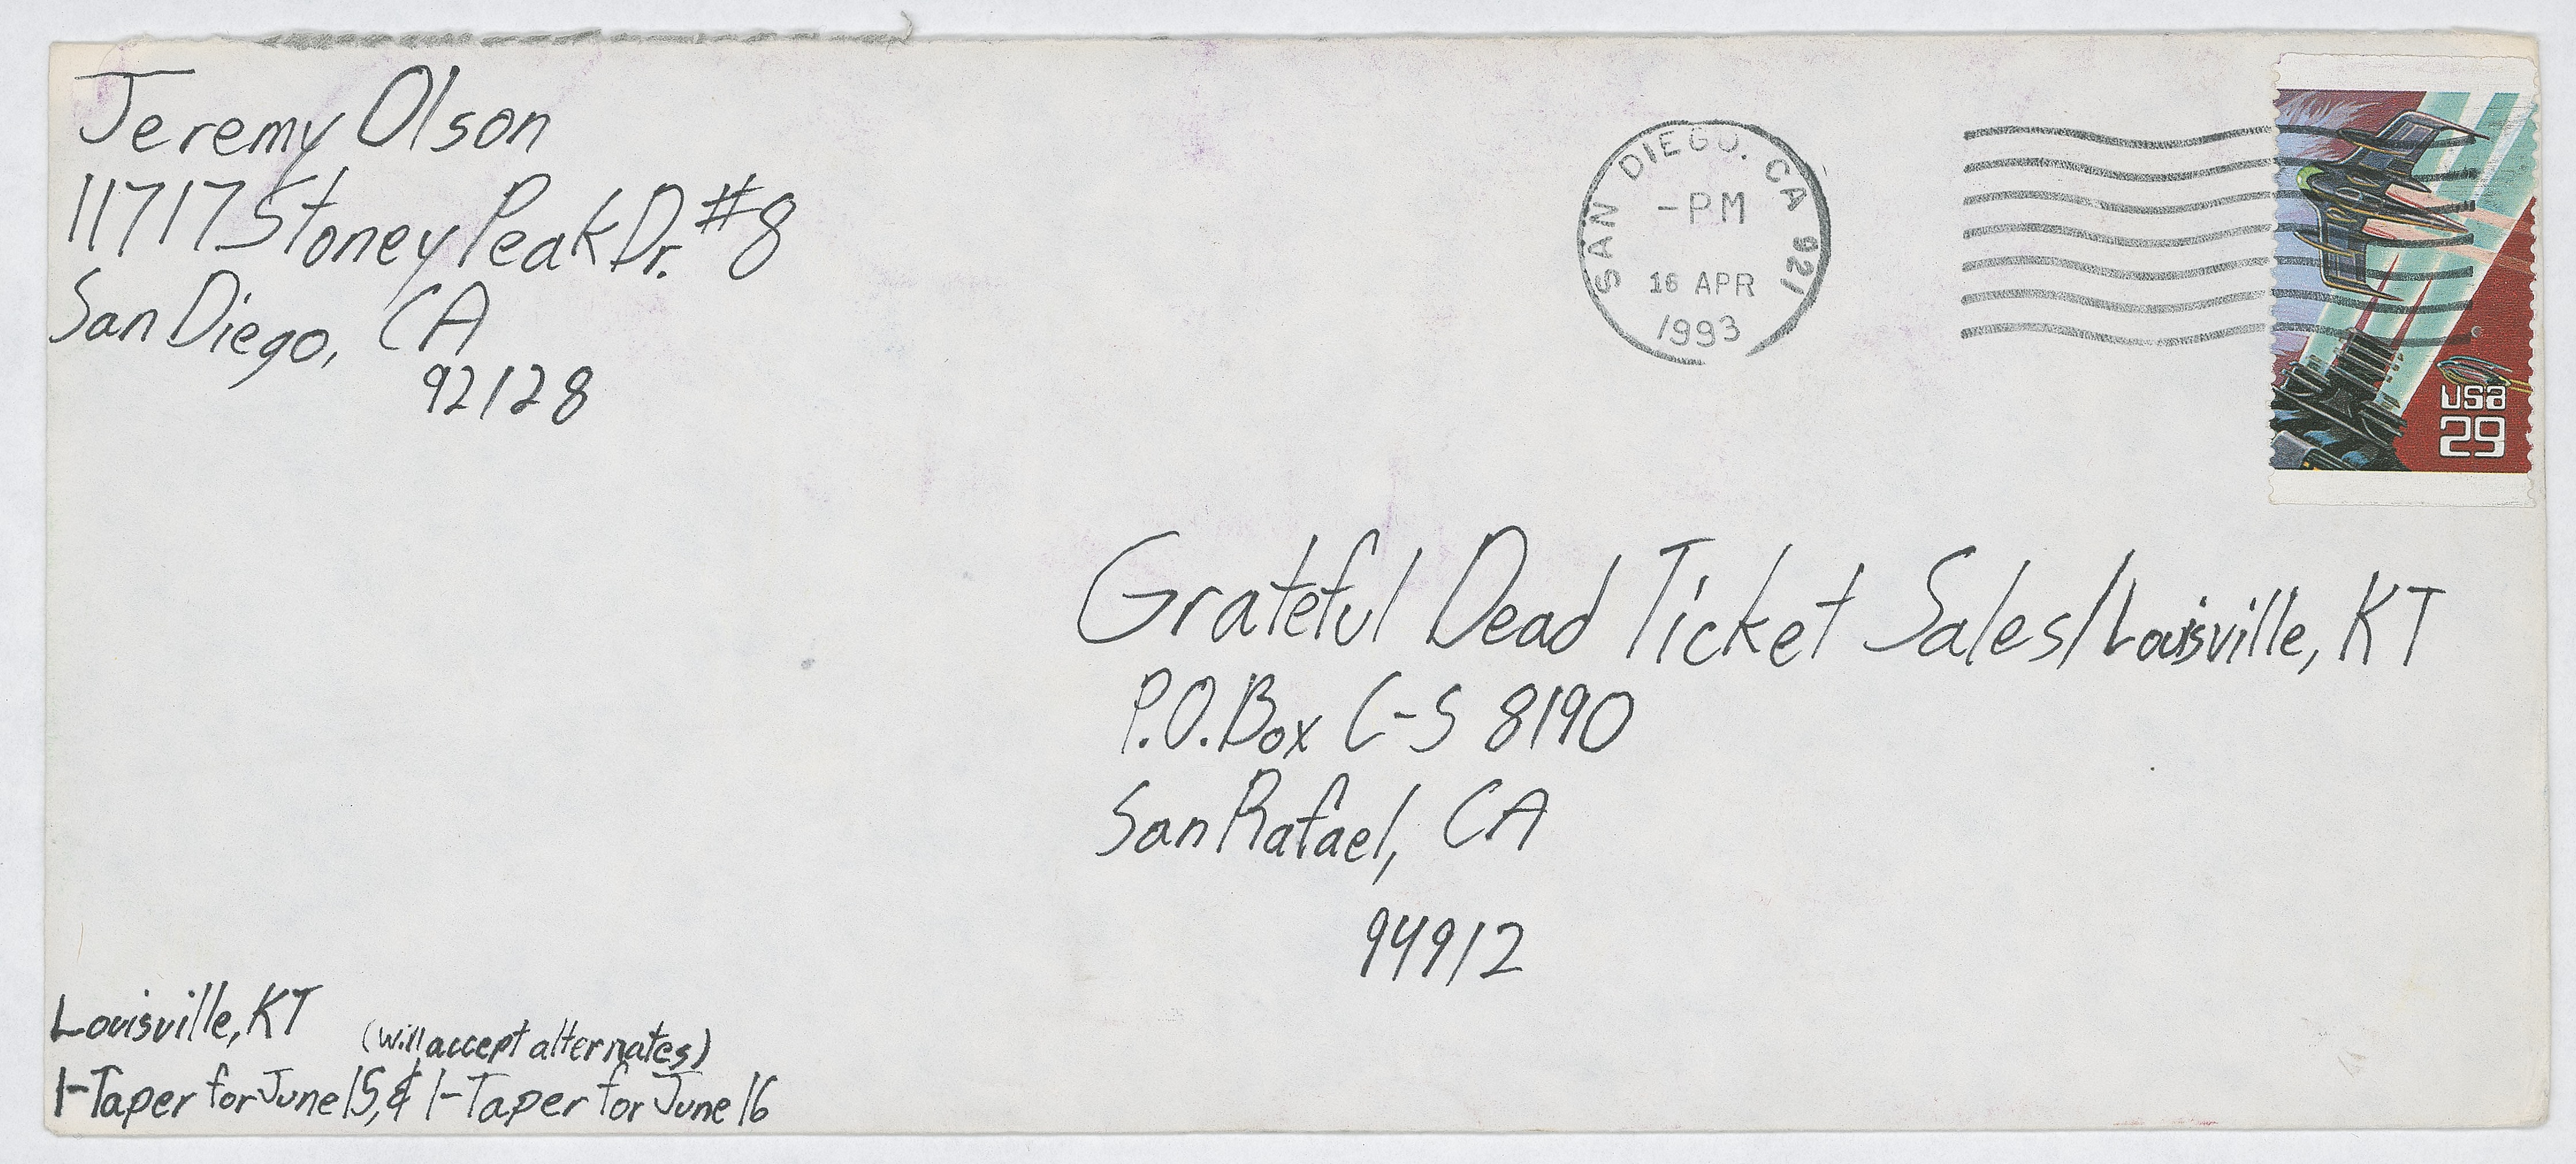 Jeremy Olson
11717 Stoney Peak Dr. #8
San Diego, CA
92128
SAN DIEGO, CA 921
-PM
16 APR
1993
USA
29
Grateful Dead Ticket Sales/Louisville, KT
P.O. Box C-S 8190
San Rafael, CA
94912
Louisville, KT
(will accept alternates)
1-Taper for June 15, & 1-Taper for June 16